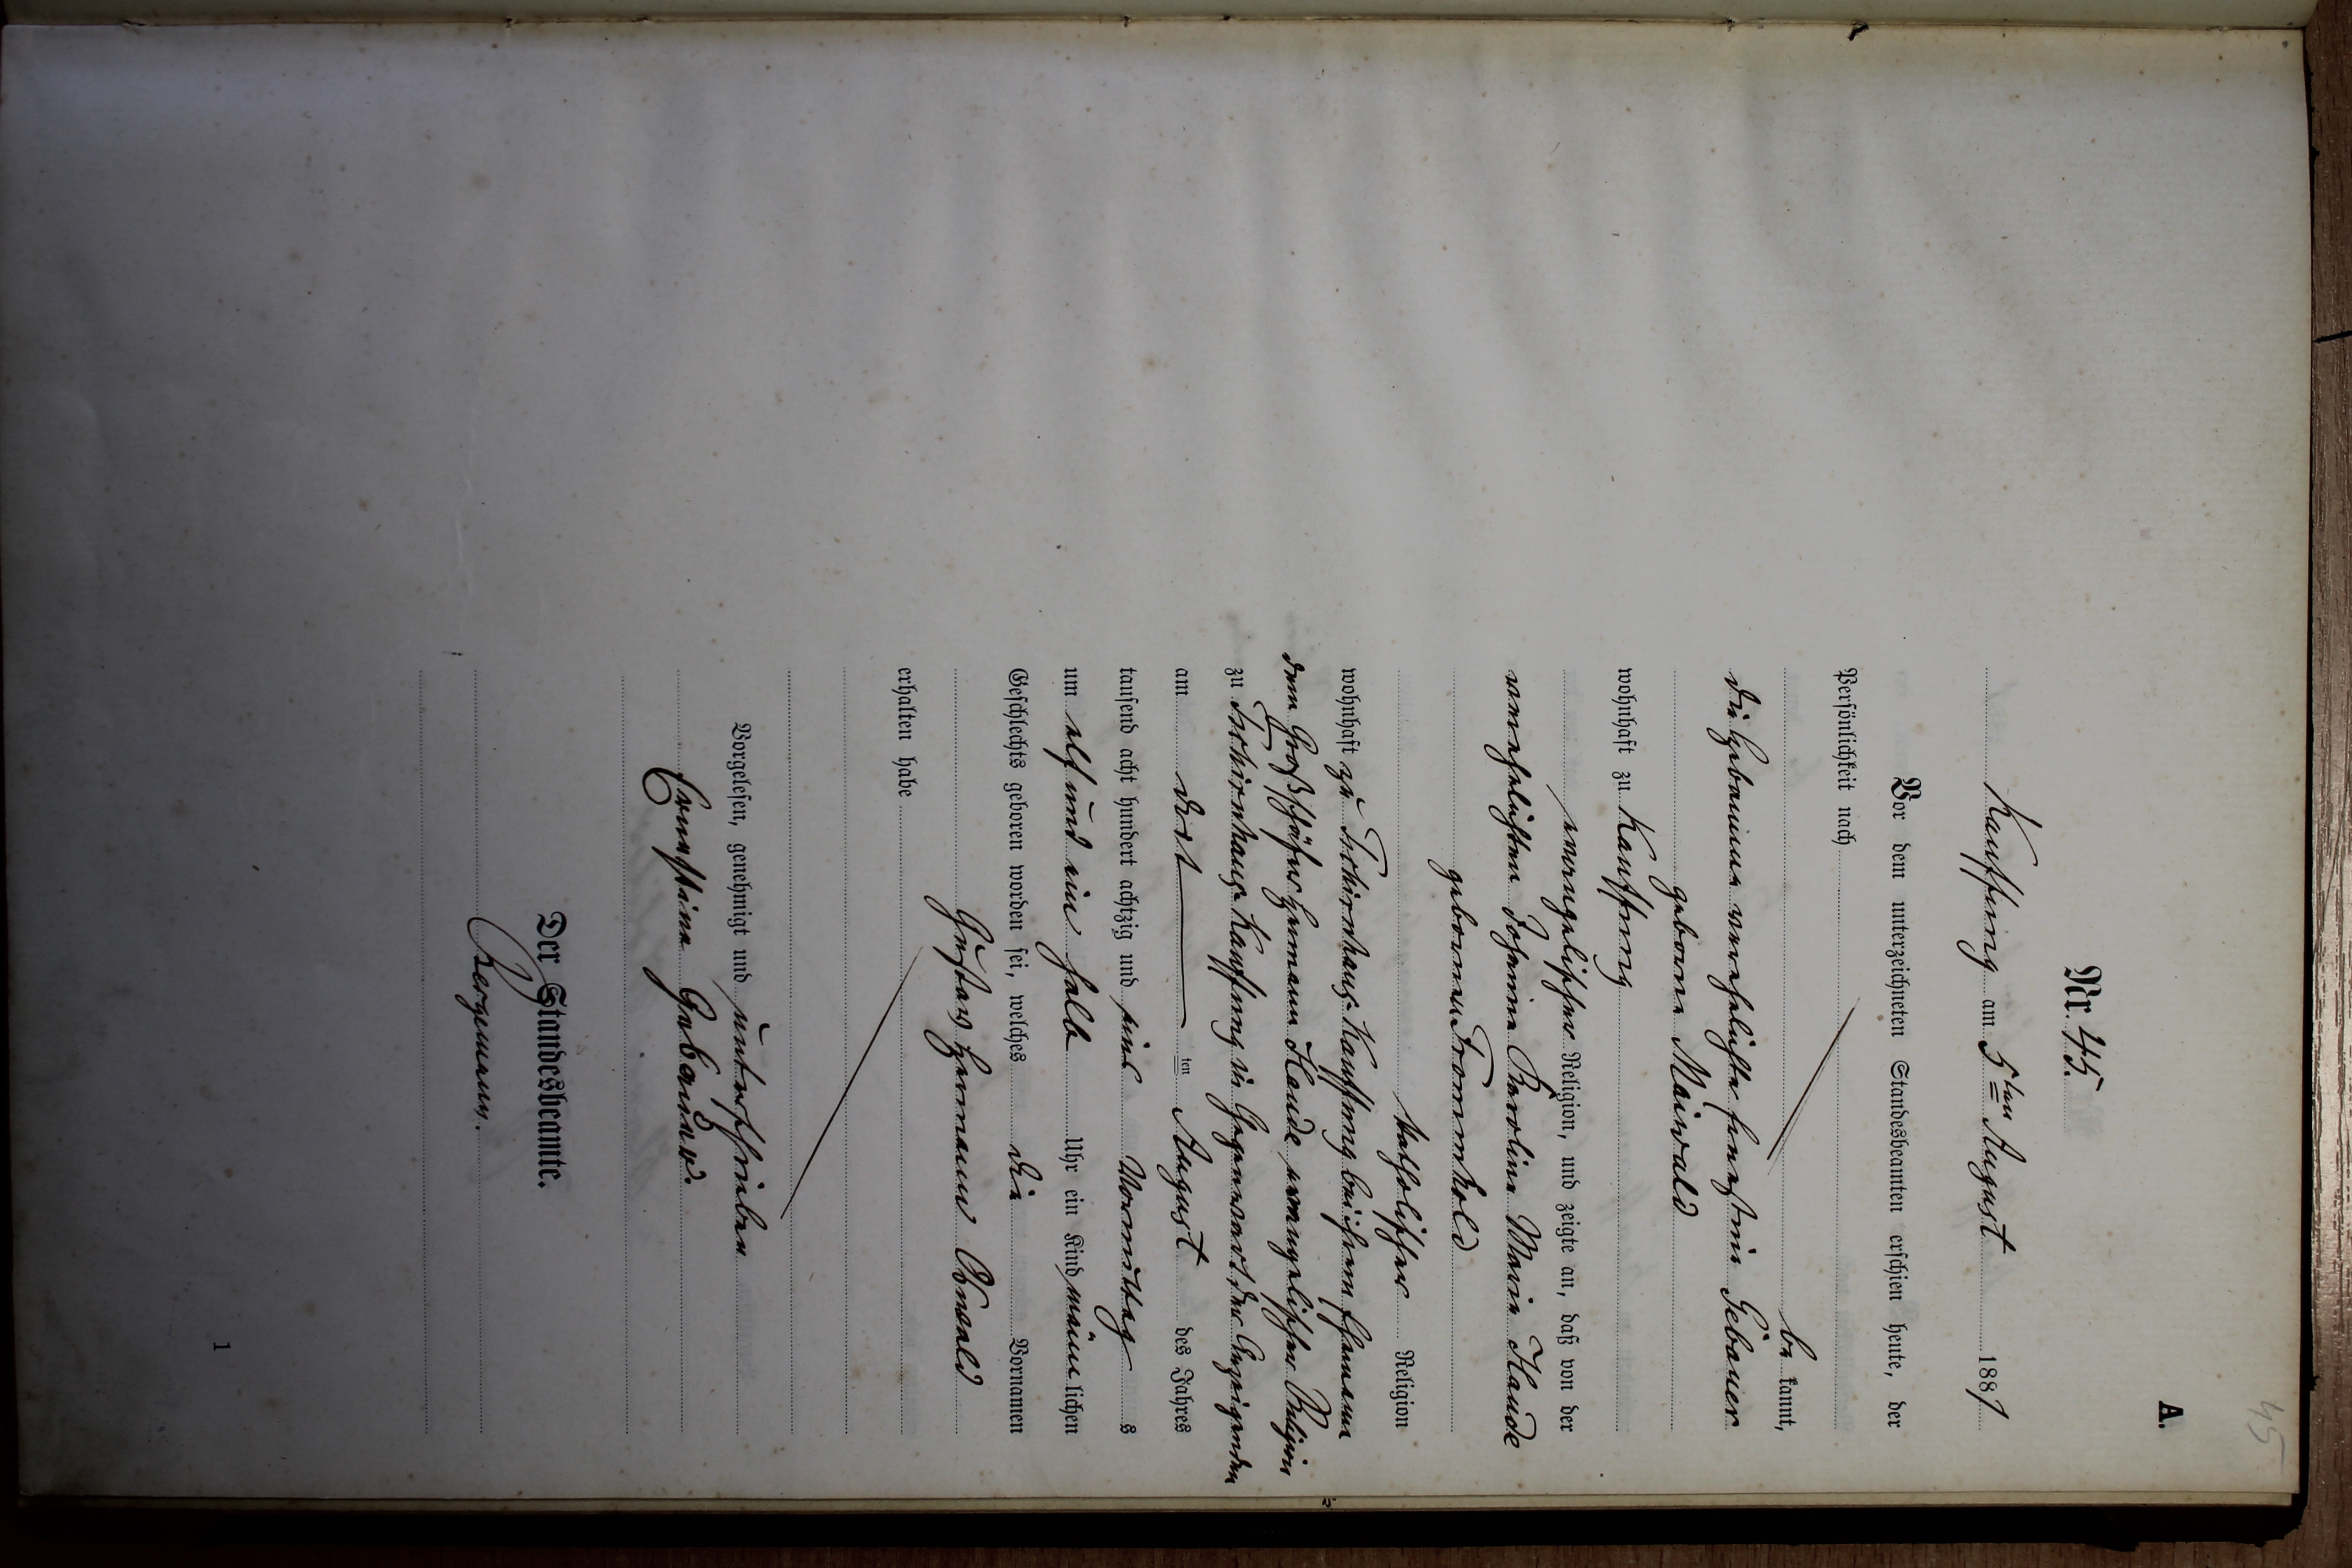 45
A.
Nr. 45.
Kauffung am 5ten August 1887
Vor dem unterzeichneten Standesbeamten erschien heute, der
Persönlichkeit nach
be kannt,
die Hebamme verehelichte Ernestine Gebauer
geborne Maiwald
wohnhaft zu Kauffung
evangelischer Religion, und zeigte an, daß von der
verehelichten Johanne Karoline Marie Klaude
gebornen Frommhold
katholischer Religion
wohnhaft zu Tschirnhaus Kauffung bei ihrem Ehemann
dem Großschäfer Hermann Klaude evangelischer Religion
zu Tschirnhaus Kauffung in Gegenwart der Anzeigenden
am dort ten August des Jahres
tausend acht hundert achtzig und Vormittag s
um elf und ein halb Uhr ein Kind männ lichen
Geschlechts geboren worden sei, welches die Vornamen
Gustav Hermann Oswald
erhalten habe
Vorgelesen, genehmigt und unterschrieben
Ernestine Gebauer.
Der Standesbeamte.
Bergemann.
1